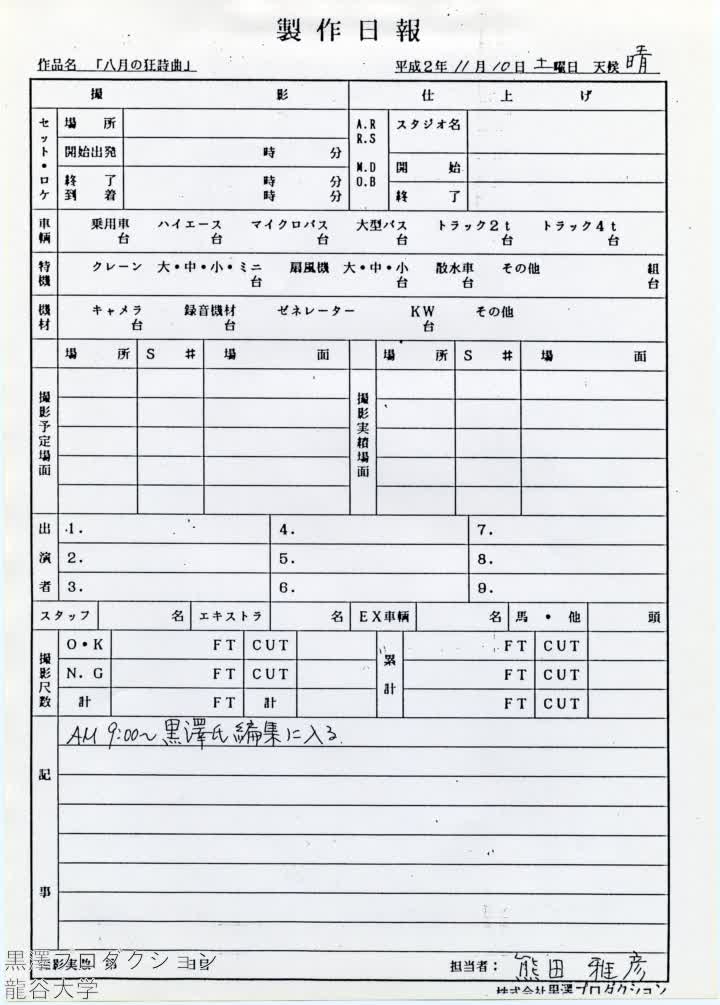 製作日報
作品名 「八月の狂詩曲」 平成2年 11月 10日 土曜日 天候 晴
撮 影 仕 上 げ
セット・ロケ 場 所 A.R R.S M.D O.B スタジオ名
開始出発 時 分 開 始
終 了 時 分 終 了
到 着 時 分
車輌 乗用車 台 ハイエース 台 マイクロバス 台 大型バス 台 トラック2t 台 トラック4t 台
特機 クレーン 大・中・小・ミニ 台 扇風機 大・中・小 台 散水車 台 その他 組 台
機材 キャメラ 台 録音機材 台 ゼネレーター KW 台 その他
場 所 S # 場 面 場 所 S # 場 面
撮影予定場面 撮影実績場面
出演者 1. 4. 7.
2. 5. 8.
3. 6. 9.
スタッフ 名 エキストラ 名 EX車輌 名 馬・他 頭
撮影尺数 O・K FT CUT 累計 FT CUT
N.G FT CUT FT CUT
計 FT 計 FT CUT
記事
AM 9:00〜黒澤氏編集に入る
担当者: 熊田 雅彦
株式会社黒澤プロダクション
黒澤プロダクション
龍谷大学